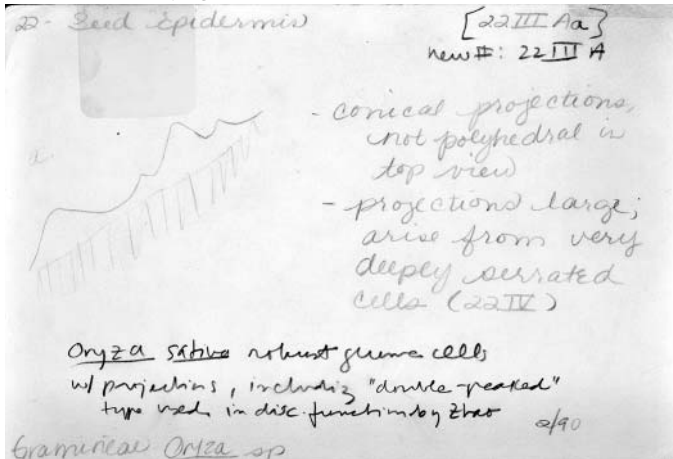 22- Seed Epidermis
[22 III Aa]
new #: 22 III A
a.
- conical projections,
not polyhedral in
top view
- projections large;
arise from very
deeply serrated
cells (22 IV)
Oryza sativa robust glume cells
w/ projections, including "double-peaked"
type used in disc. function by Zhao
2/90
Gramineae Oryza sp